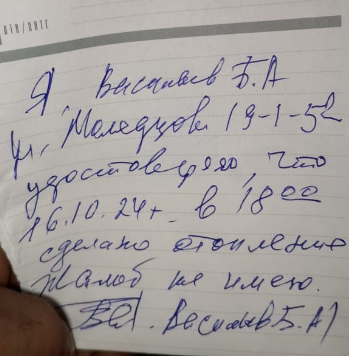 Я, Васильев Б.А
ул. Молодцова 19-1-52
удостоверяю, что
16.10.24г. в 18 00
сделано отопление
Жалоб не имею.
Васильев Б.А)